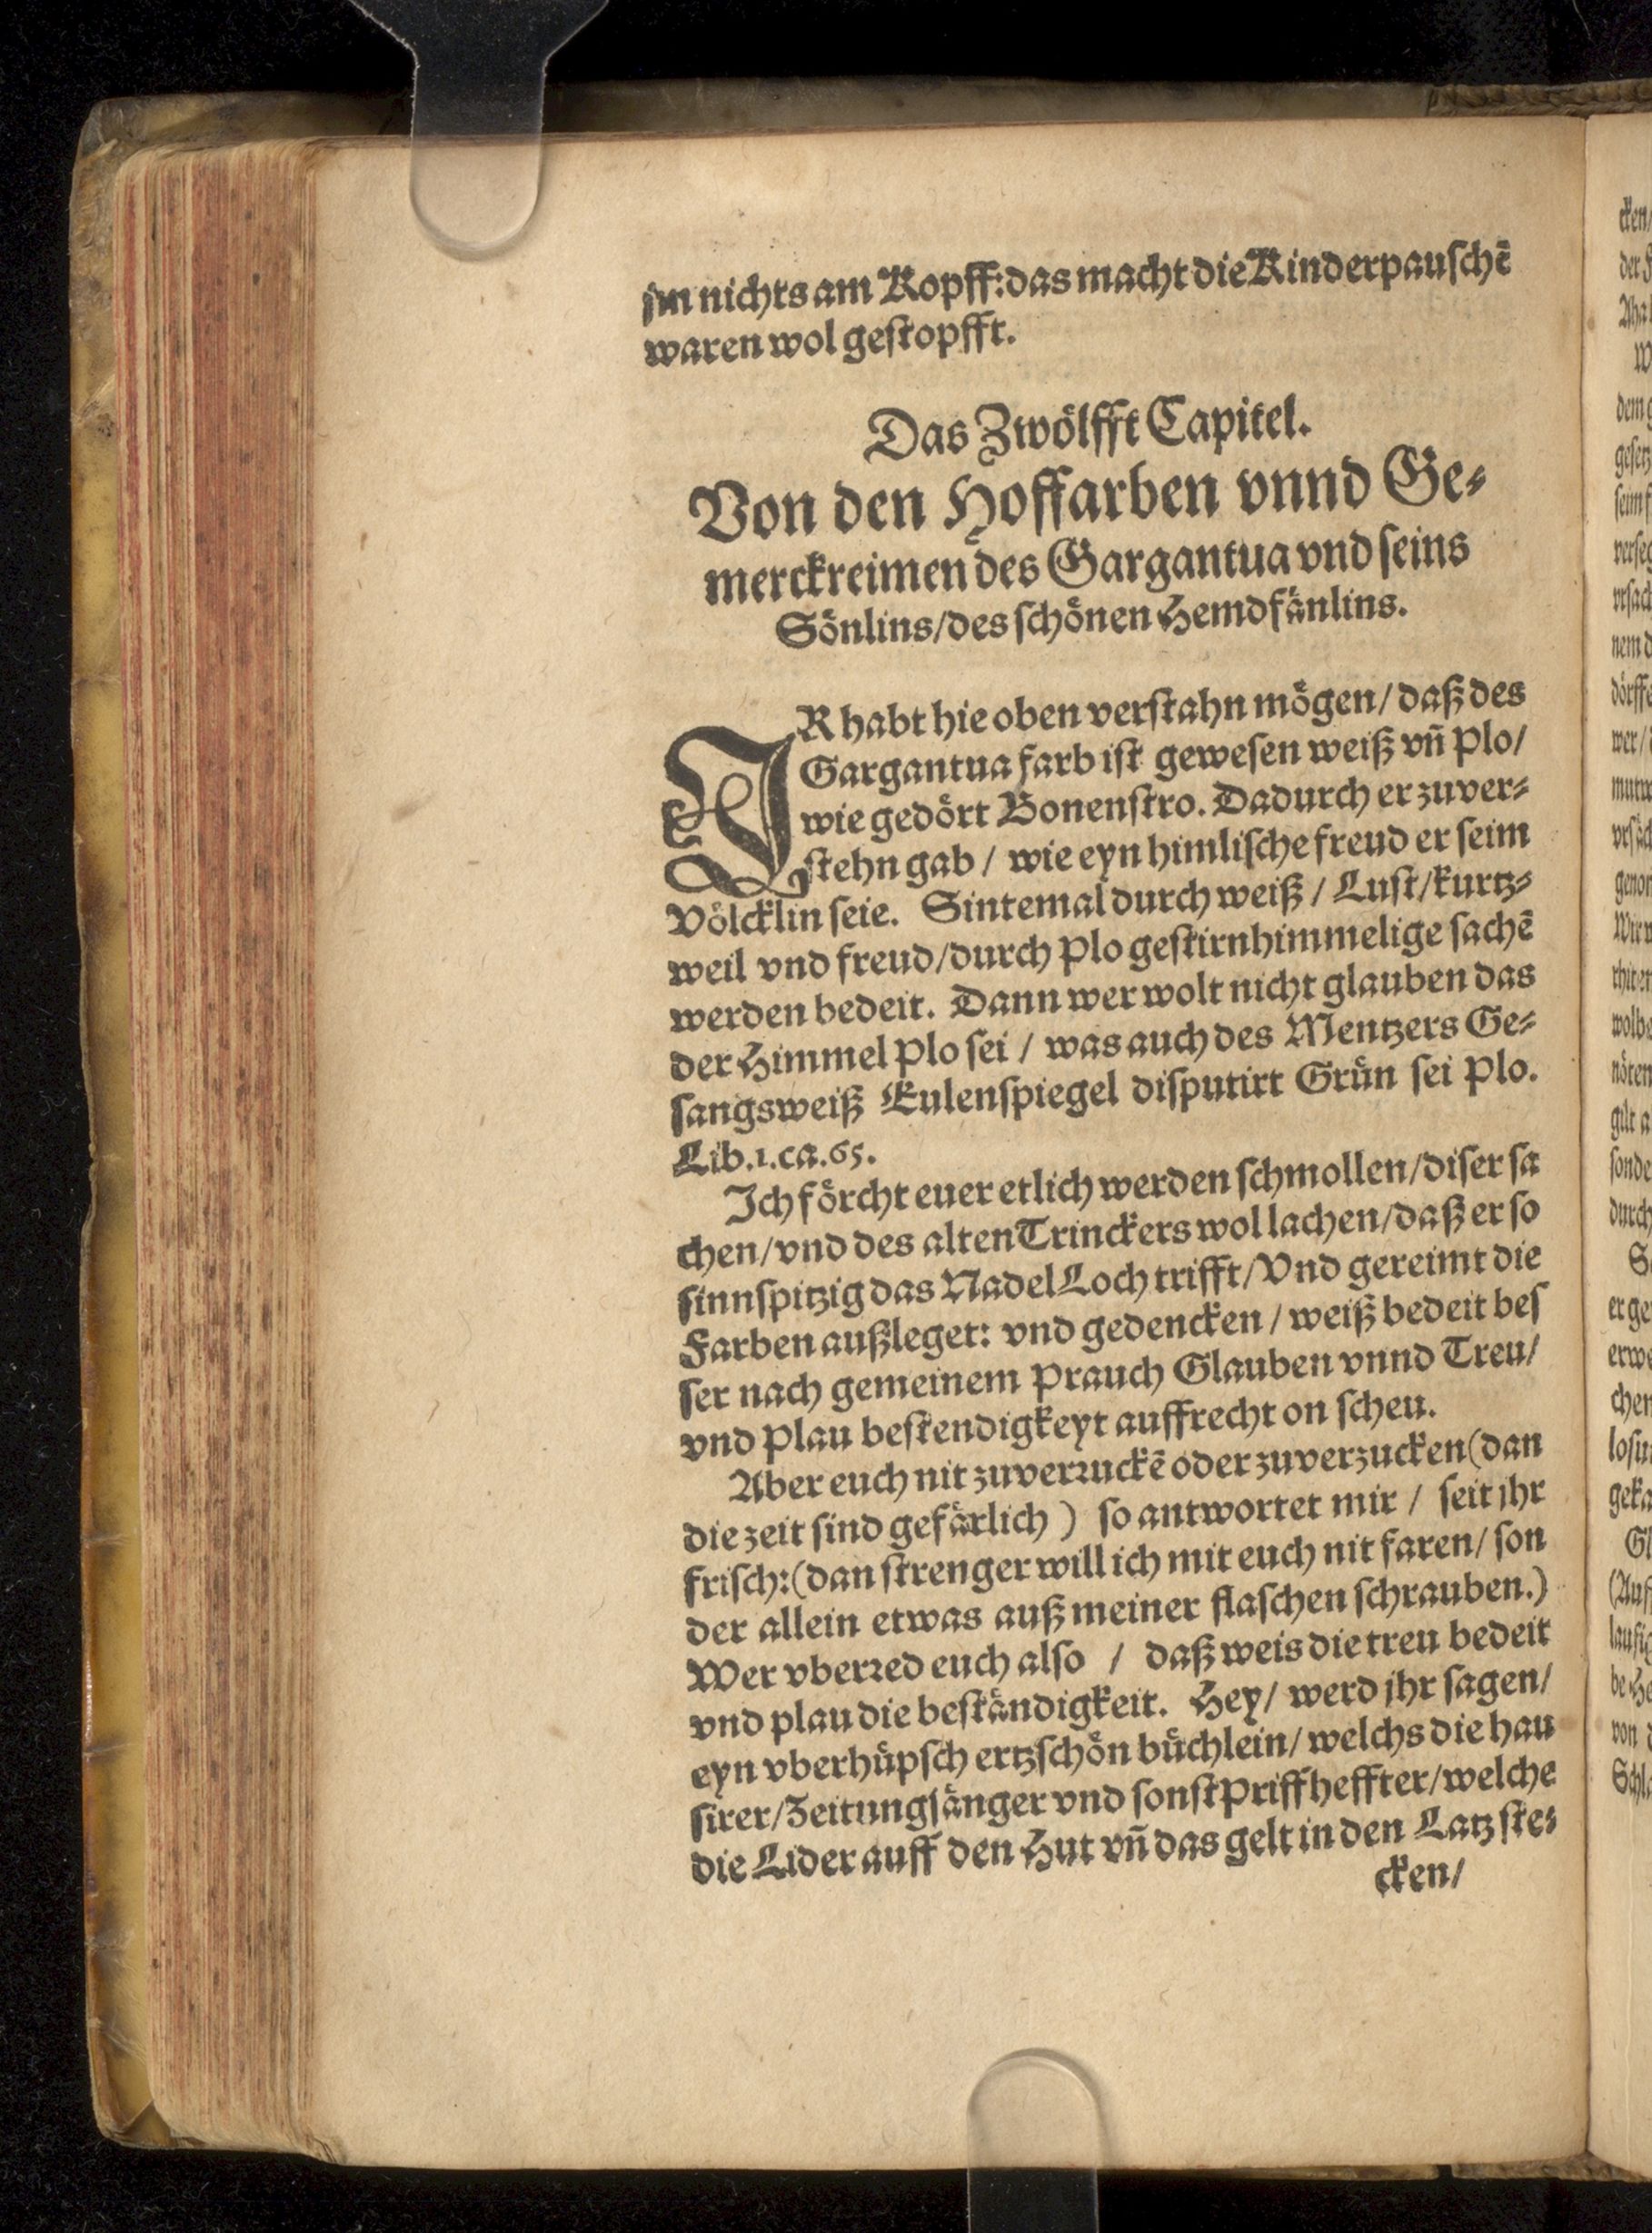 jm nichts am Kopff: das macht die Kinderpauschē
waren wol gestopfft.
Das Zwölfft Capitel.
Von den Hoffarben vnnd Ge-
merckreimen des Gargantua vnd seins
Sönlins/ des schönen Hemdfänlins.
IR habt hie oben verstahn mögen/ daß des
Gargantua farb ist gewesen weiß vñ Plo/
wie gedört Bonenstro. Dadurch er zuver-
stehn gab / wie eyn himlische freud er seim
Völcklin seie. Sintemal durch weiß / Lust/ kurtz-
weil vnd freud/ durch Plo gestirnhimmelige sachē
werden bedeit. Dann wer wolt nicht glauben das
der Himmel Plo sei / was auch des Mentzers Ge-
sangsweiß Eulenspiegel disputirt Grün sei Plo.
Lib.1.ca.65.
Ich förcht euer etlich werden schmollen/ diser sa
chen/ vnd des alten Trinckers wol lachen/ daß er so
sinnspitzig das Nadel Loch trifft/ Vnd gereimt die
Farben außleget: vnd gedencken / weiß bedeit bes
ser nach gemeinem Prauch Glauben vnnd Treu/
vnd Plau bestendigkeyt auffrecht on scheu.
Aber euch nit zuverruckē oder zuverzucken (dan
die zeit sind gefärlich) so antwortet mir / seit jhr
frisch: (dan strenger will ich mit euch nit faren/ son
der allein etwas auß meiner flaschen schrauben.)
Wer vberred euch also / daß weis die treu bedeit
vnd plau die beständigkeit. Hey/ werd jhr sagen/
eyn vberhüpsch ertzschön büchlein/ welchs die hau
sirer/ Zeitungsänger vnd sonst Priffheffter/ welche
die Lider auff den Hut vñ das gelt in den Latz ste-
cken/